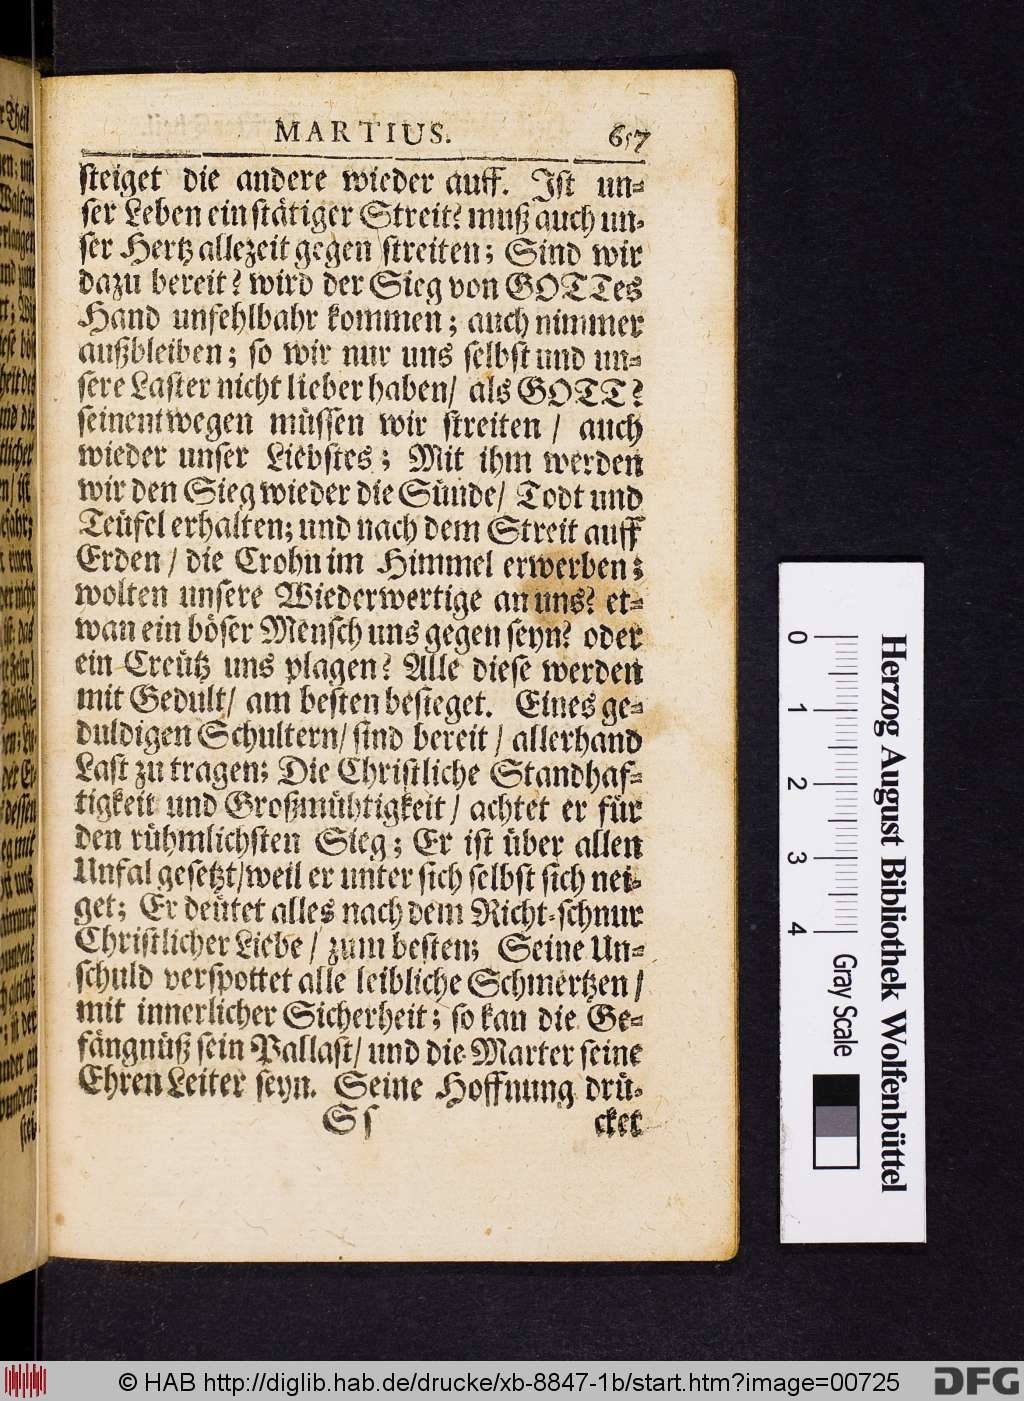 MARTIUS. 657
steiget die andere wieder auff. Ist un-
ser Leben ein stätiger Streit? muß auch un-
ser Hertz allezeit gegen streiten; Sind wir
dazu bereit? wird der Sieg von GOTTes
Hand unfehlbahr kommen; auch nimmer
außbleiben; so wir nur uns selbst und un-
sere Laster nicht lieber haben/ als GOTT?
seinentwegen müssen wir streiten / auch
wieder unser Liebstes; Mit ihm werden
wir den Sieg wieder die Sünde/ Todt und
Teüfel erhalten; und nach dem Streit auff
Erden / die Crohn im Himmel erwerben;
wolten unsere Wiederwertige an uns? et-
wan ein böser Mensch uns gegen seyn? oder
ein Creütz uns plagen? Alle diese werden
mit Gedult/ am besten besieget. Eines ge-
duldigen Schultern/ sind bereit / allerhand
Last zu tragen; Die Christliche Standhaf-
tigkeit und Großmühtigkeit / achtet er für
den rühmlichsten Sieg; Er ist über allen
Unfal gesetzt/ weil er unter sich selbst sich nei-
get; Er deütet alles nach dem Richt-schnur
Christlicher Liebe / zum besten; Seine Un-
schuld verspottet alle leibliche Schmertzen /
mit innerlicher Sicherheit; so kan die Ge-
fängnüß sein Pallast/ und die Marter seine
Ehren Leiter seyn. Seine Hoffnung drü-
Ss cket
Herzog August Bibliothek Wolfenbüttel
0 1 2 3 4 Gray Scale
© HAB http://diglib.hab.de/drucke/xb-8847-1b/start.htm?image=00725
DFG